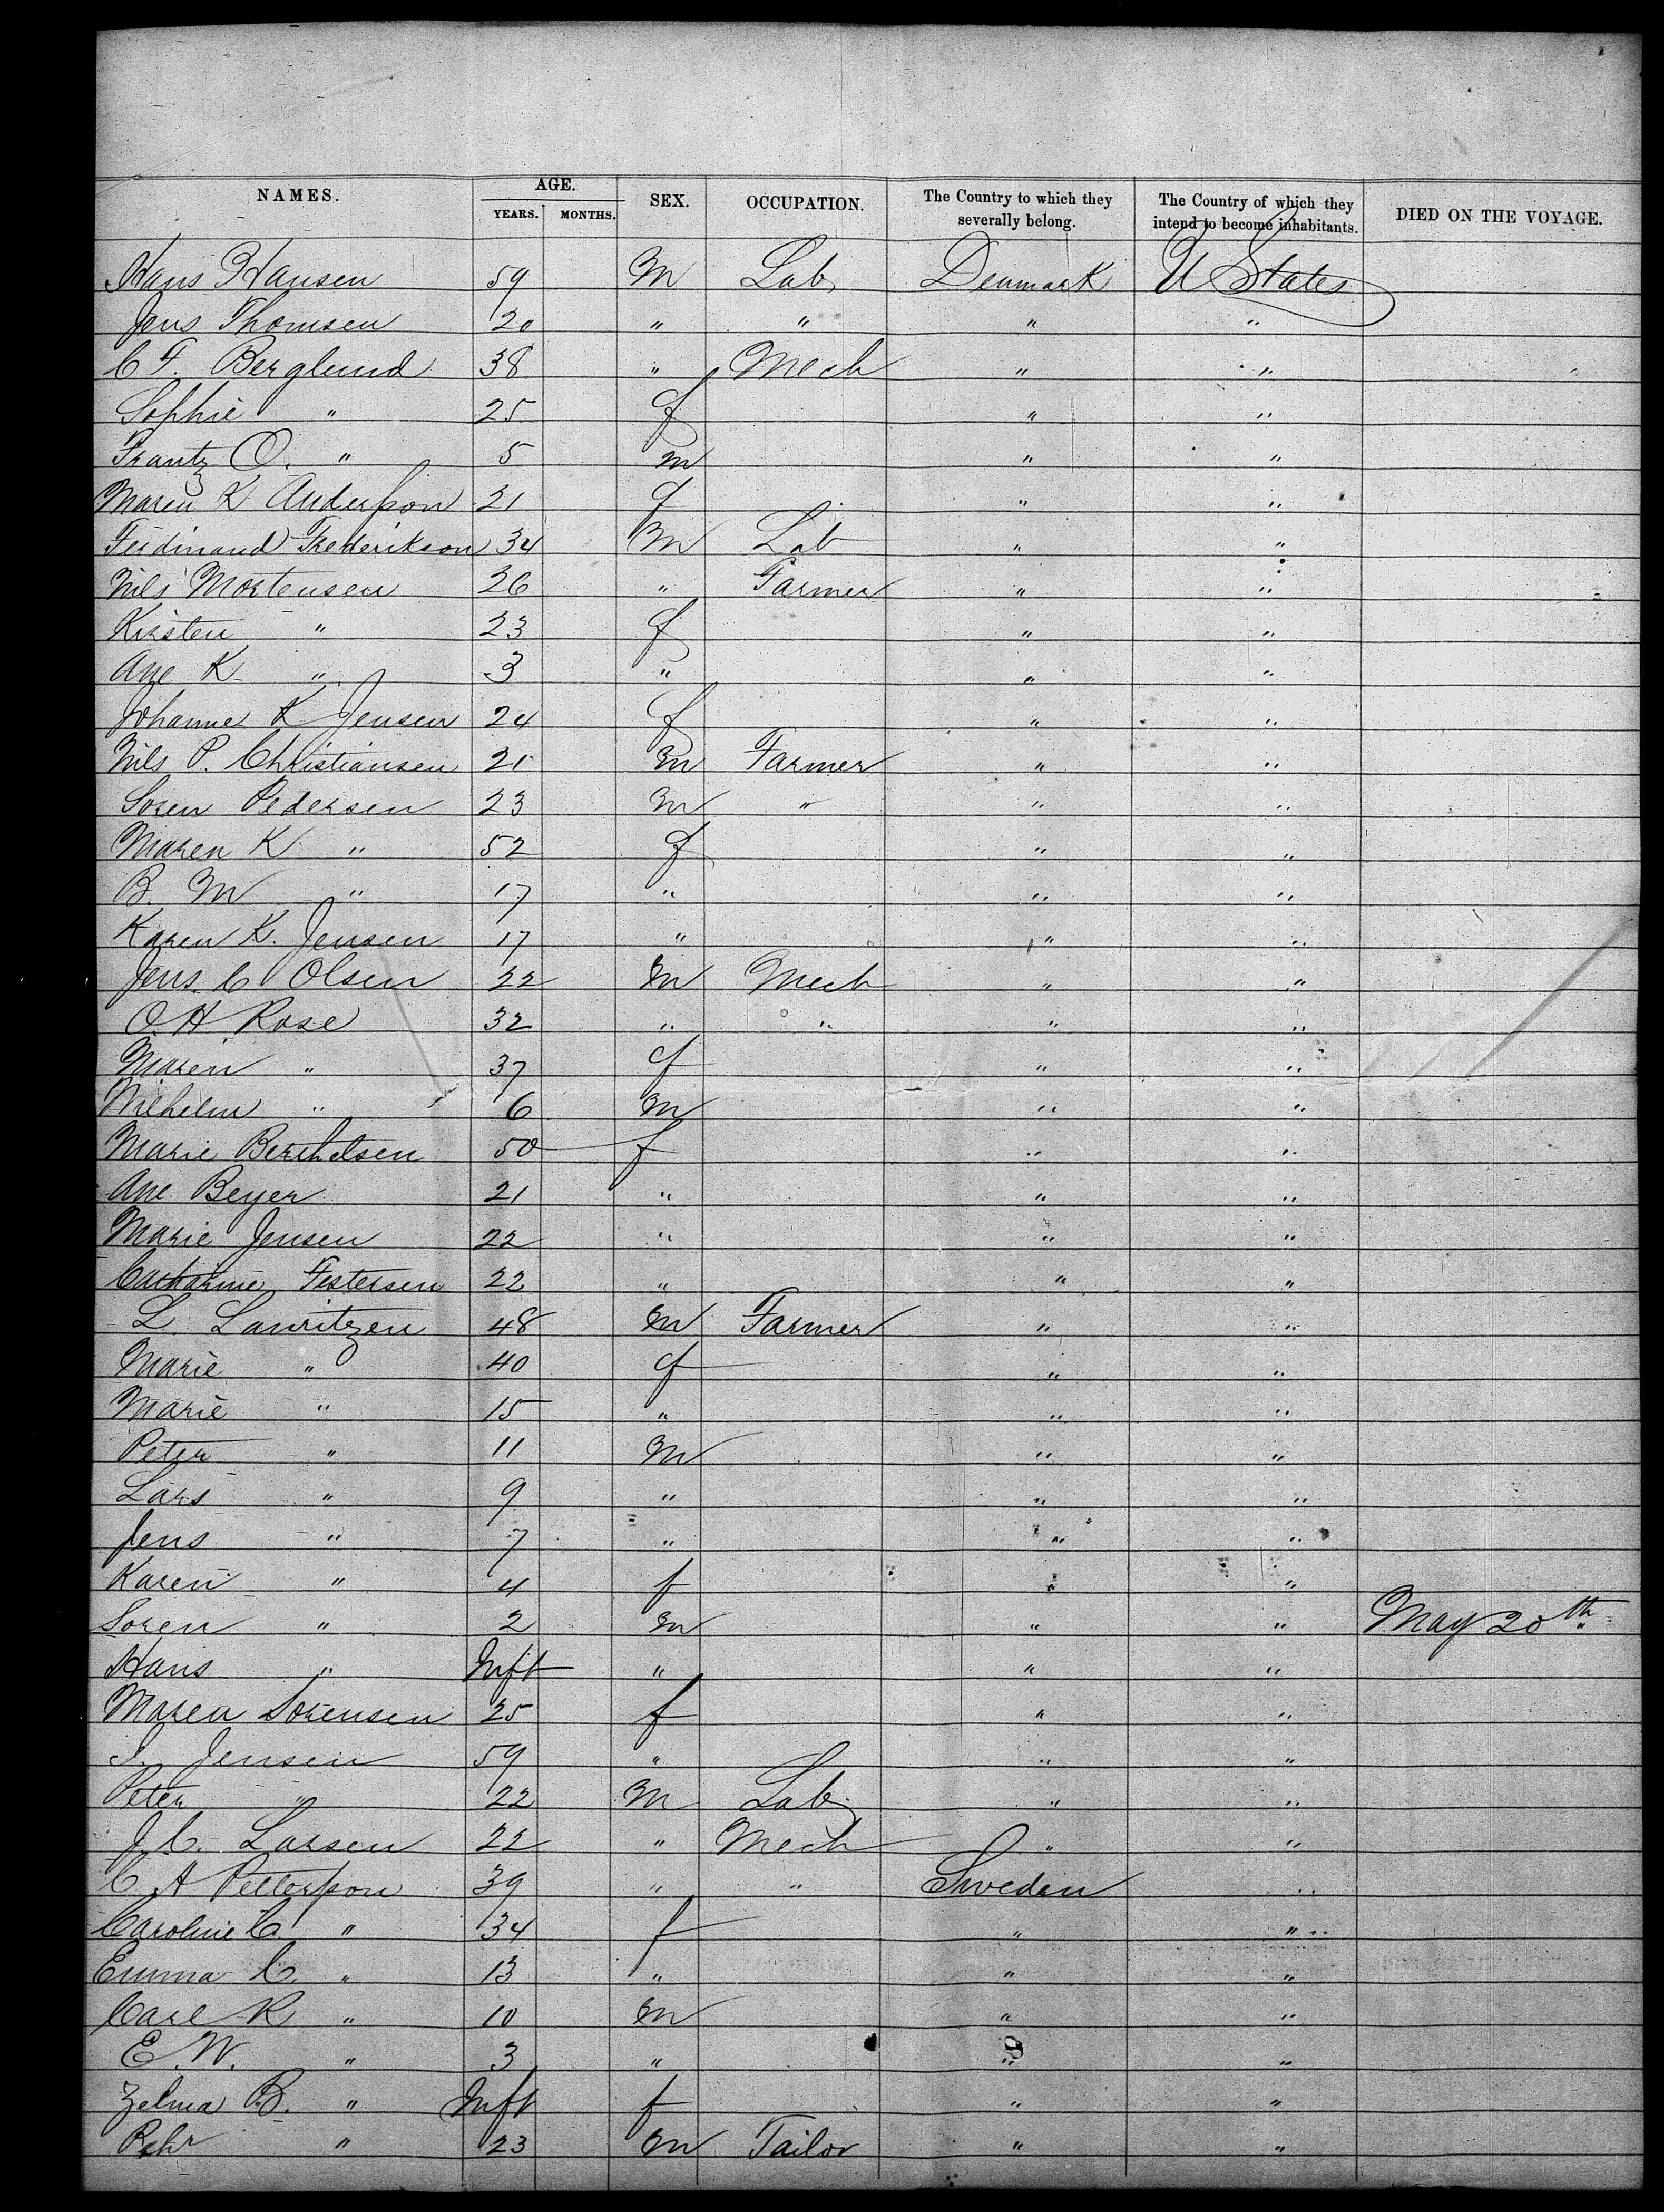 NAMES. AGE. YEARS. MONTHS. SEX. OCCUPATION. The Country to which they severally belong. The Country of which they intend to become inhabitants. DIED ON THE VOYAGE.
Hans Hansen 59 M Lab Denmark U States
Jens Thomsen 20 " " " "
C F. Berglund 38 " Mech " "
Sophie " 25 f " "
Frantz O. " 5 m " "
Maren K Anderson 21 f " "
Ferdinand Frederikson 34 M Lab " "
Nils Mortensen 26 " Farmer " "
Kirsten " 23 f " "
Ane K " 3 " " "
Johanne K Jensen 24 f " "
Nils P. Christiansen 21 m Farmer " "
Soren Pedersen 23 m " " "
Maren K " 52 f " "
B. M " 17 " " "
Karen K. Jensen 17 " " "
Jens C Olsen 22 m Mech " "
O. H Rose 32 " " " "
Maren " 37 f " "
Wilhelm " 6 m " "
Marie Berthelsen 50 f " "
Ane Beyer 21 " " "
Marie Jensen 22 " " "
Catharine Festersen 22 " " "
L. Lauritzen 48 m Farmer " "
Marie " 40 f " "
Marie " 15 " " "
Peter " 11 m " "
Lars " 9 " " "
Jens " 7 " " "
Karen " 4 f " "
Soren " 2 m " " May 20th
Hans " Inft " " "
Maren Sorensen 25 f " "
Jensen 59 " " "
Peter " 22 M Lab " "
J. C. Larsen 22 " Mech " "
C A Petterson 39 " " Sweden "
Caroline C. " 34 f " "
Emma C. " 13 " " "
Carl R " 10 m " "
E. W. " 3 " " "
Zelma B. " Inft f " "
Pehr " 23 m Tailor " "